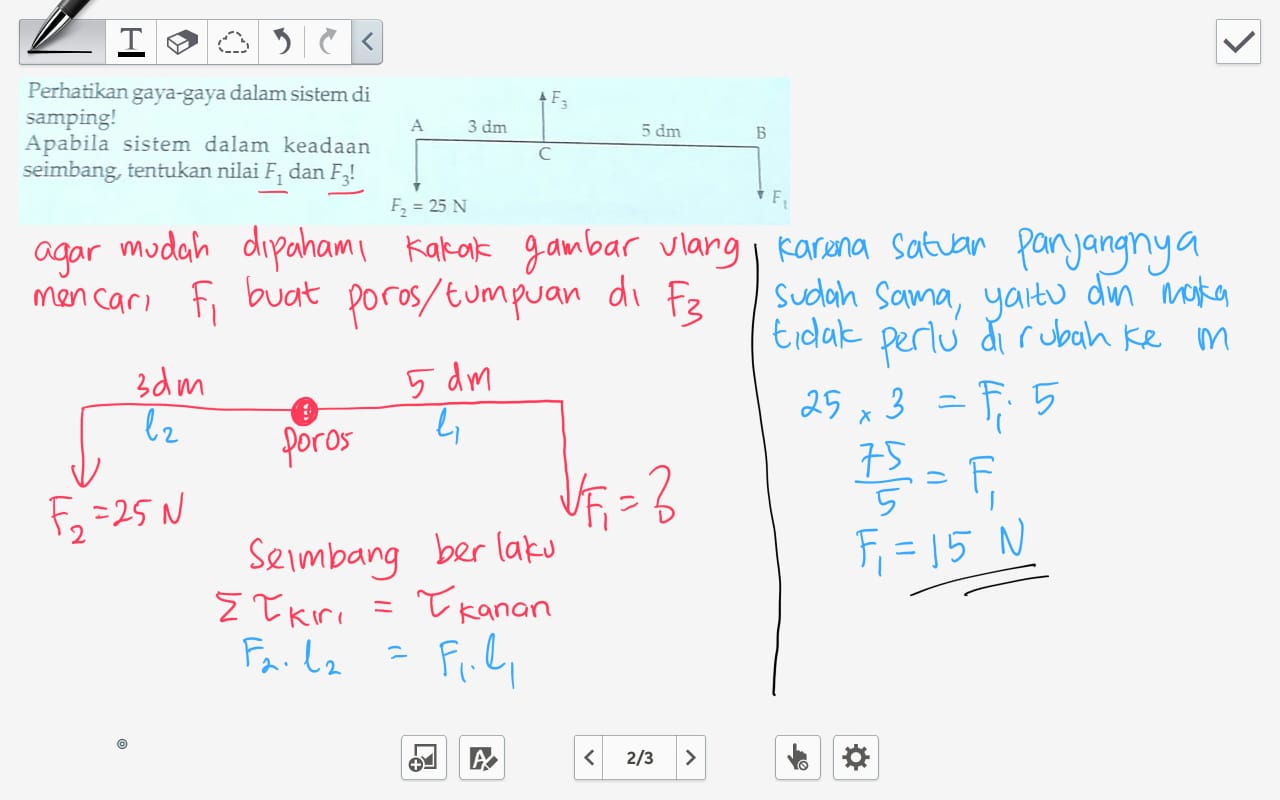 T
Perhatikan gaya-gaya dalam sistem di
samping!
Apabila sistem dalam keadaan
seimbang, tentukan nilai F₁ dan F₃!
F₃
A 3 dm 5 dm B
C
F₂ = 25 N
F₁
agar mudah dipahami kakak gambar ulang
mencari F₁ buat poros/tumpuan di F₃
3dm 5 dm
l₂ poros l₁
F₂ = 25 N
F₁ = ?
Seimbang berlaku
Σ τ kiri = τ kanan
F₂. l₂ = F₁. l₁
karena satuan panjangnya
sudah sama, yaitu dm maka
tidak perlu di rubah ke m
25 x 3 = F₁. 5
75/5 = F₁
F₁ = 15 N
A
2/3